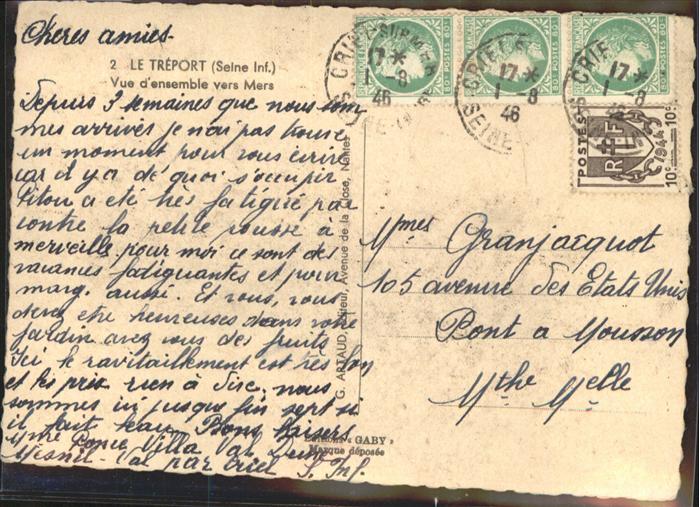 Cheres amies
2 LE TRÉPORT (Seine Inf.)
Vue d'ensemble vers Mers
Depuis 3 semaines que nous som
mes arrivés je n'ai pas trouvé
un moment pour vous écrire
car il y a de quoi s'occuper
Pitou a été très fatigué par
contre la petite pousse à
merveille pour moi ce sont des
vacances fatiguantes et pour
marg. aussi. Et vous, vous
devez être heureuses dans votre
jardin avez vous des fruits
Ici le ravitaillement est très bon
et les prix rien à dire. nous
sommes ici jusque fin sept si
il fait beau Bons baisers
Mme Villa Val
Mesnil-Val par Criel S. Inf.
G. ARTAUD, Editeur, Avenue de la Close, Nantes
Editions « GABY »
Marque déposée
CRIEL-SUR-MER
17 *
1 -8
46
SEINE-INFRE
CRIEL
17 *
1 -8
46
SEINE
CRIE
17 *
1 -8
46
POSTES
RF
1944
10c
10c
Mmes Granjacquot
105 avenue des Etats Unis
Pont a Mousson
Mthe Melle